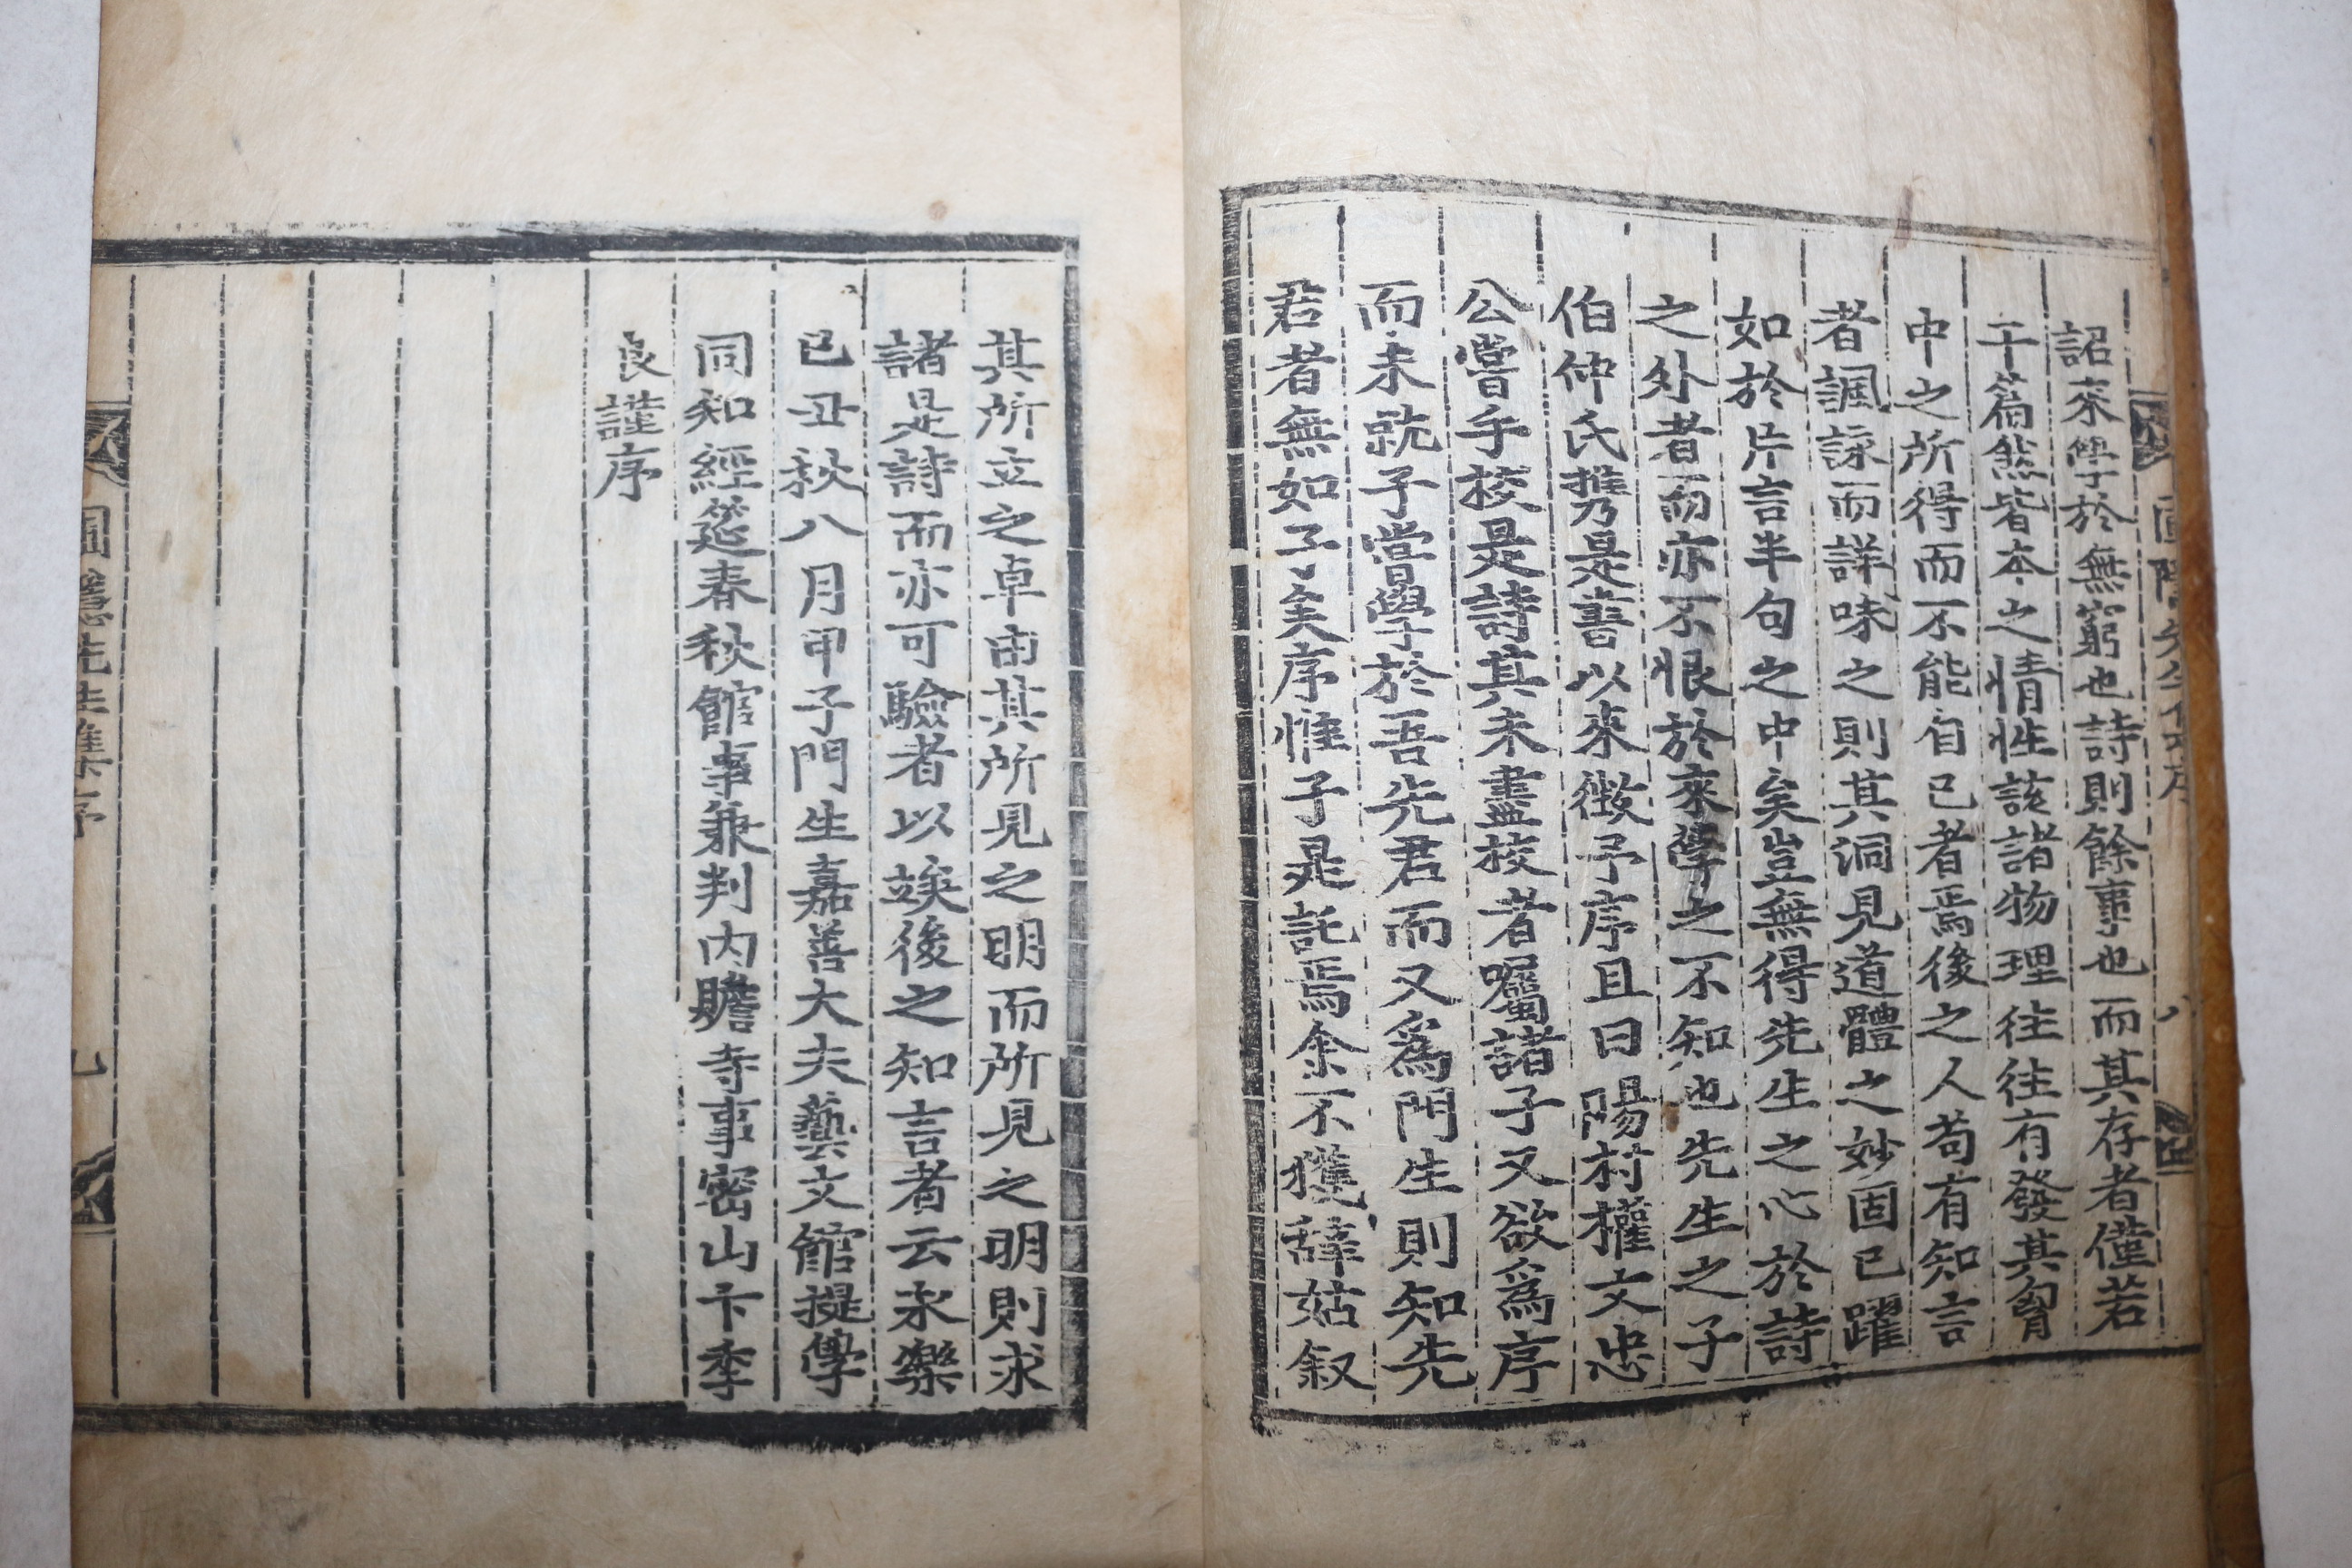 詔來學於無窮也詩則餘事也而其存者僅若
干篇然皆本之情性該諸物理往往有發其胷
中之所得而不能自已者焉後之人苟有知言
者諷詠而詳味之則其洞見道體之妙固已躍
如於片言半句之中矣豈無得先生之心於詩
之外者而亦不恨於來學之不知也先生之子
伯仲氏携是善以來徵予序且曰陽村權文忠
公嘗手校是詩其未盡挍者囑諸子又欲爲序
而未就子嘗學於吾先君而又爲門生則知先
君者無如子矣序惟子是託焉余不獲辭姑叙
其所立之卓由其所見之明而所見之明則求
諸是詩而亦可驗者以竢後之知言者云永樂
已丑秋八月甲子門生嘉善大夫藝文館提學
同知經筵春秋館事兼判內贍寺事密山卞季
良謹序
圃隱先生集序
九